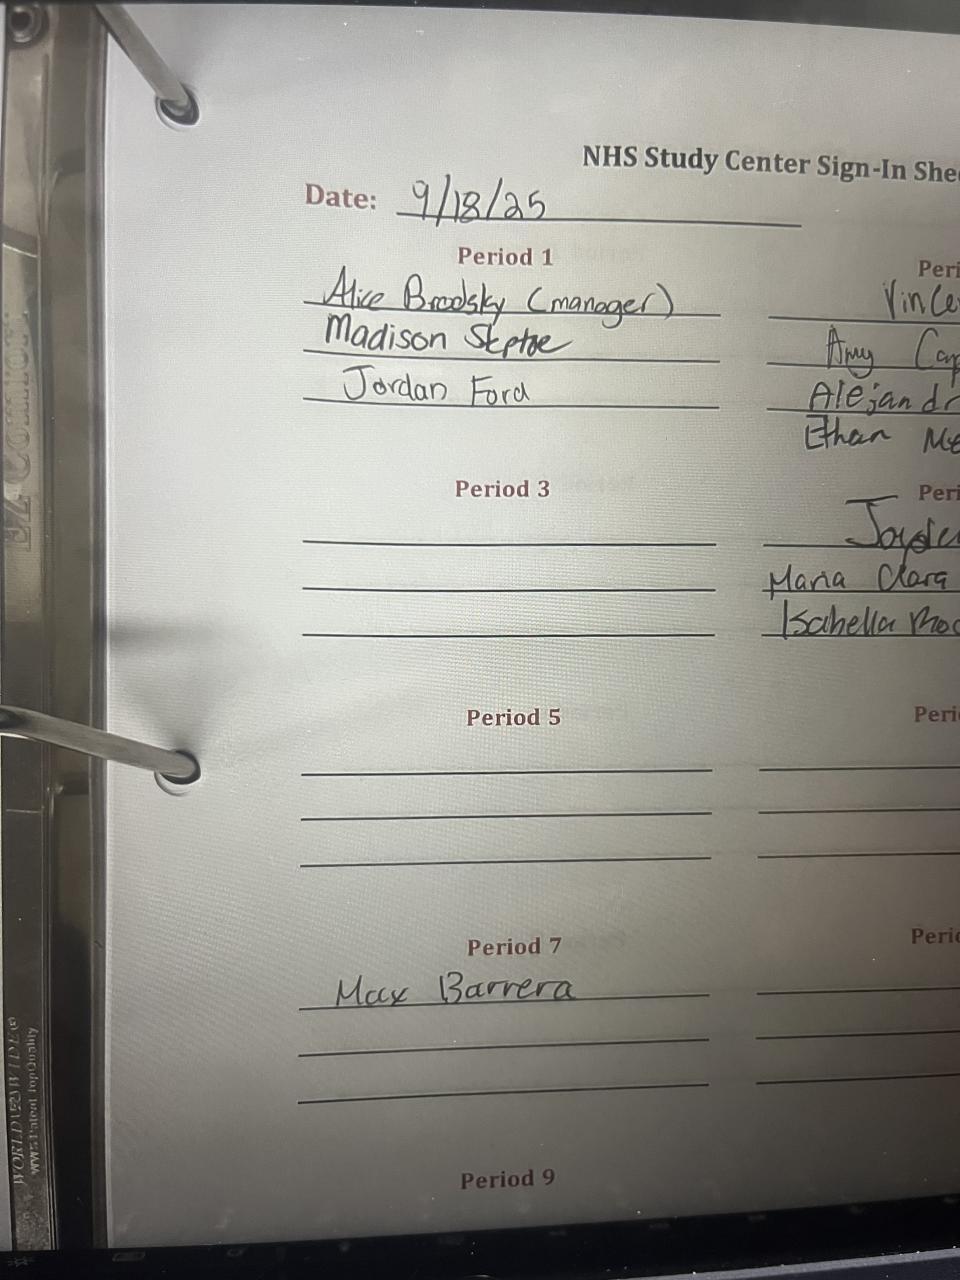 NHS Study Center Sign-In She
Date: 9/18/25
Period 1
Alice Brodsky (manager)
Madison Steptoe
Jordan Ford
Peri
Vince
Amy Cap
Alejandr
Ethan Me
Period 3
Peri
Jayde
Maria Clara
Isabella
Period 5
Peri
Period 7
Max Barrera
Perio
Period 9
WORLDWIDE